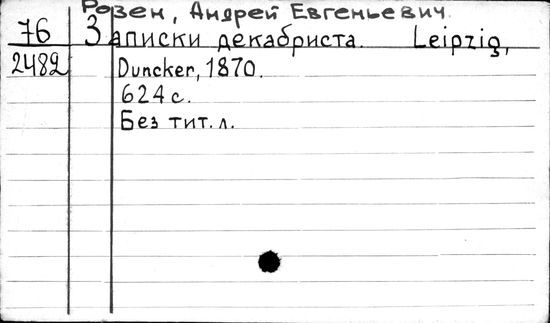 Розен, Андрей Евгеньевич.
76 Записки декабриста. Leipzig,
2482 Duncker, 1870.
624 с.
Без тит. л.